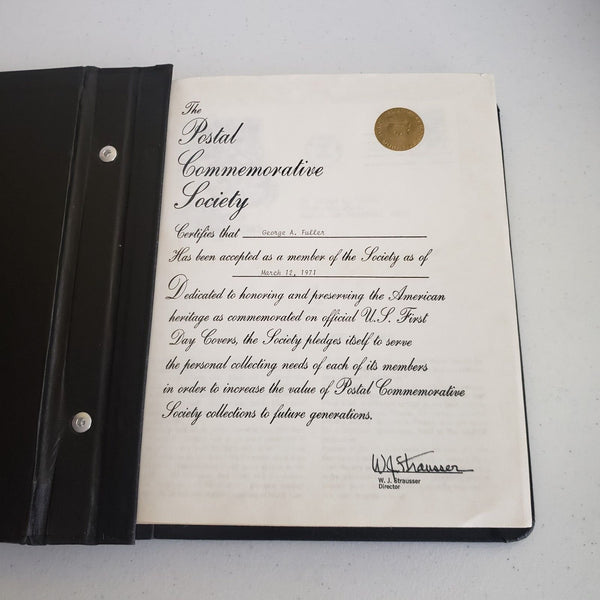 The
Postal
Commemorative
Society
Certifies that George A. Fuller
Has been accepted as a member of the Society as of
March 12, 1971
Dedicated to honoring and preserving the American
heritage as commemorated on official U.S. First
Day Covers, the Society pledges itself to serve
the personal collecting needs of each of its members
in order to increase the value of Postal Commemorative
Society collections to future generations.
W J Strausser
W. J. Strausser
Director